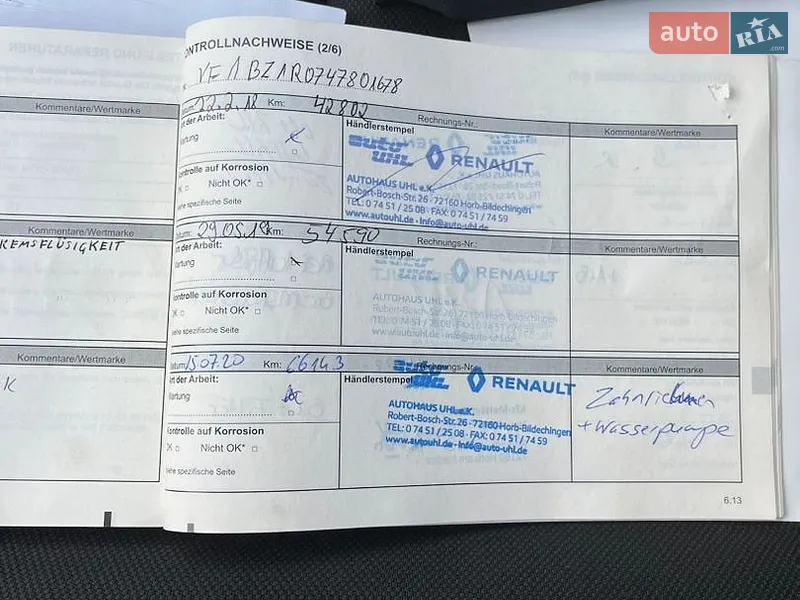 auto RIA.com
ONTROLLNACHWEISE (2/6)
VF1BZ1R0747801678
22.2.18 Km: 42802 Rechnungs-Nr.:
Kommentare/Wertmarke
t der Arbeit:
artung
Händlerstempel
auto UHL RENAULT
AUTOHAUS UHL e.K.
Robert-Bosch-Str. 26 - 72160 Horb-Bildechingen
TEL: 0 74 51 / 25 08 - FAX: 0 74 51 / 74 59
www.autouhl.de - info@auto-uhl.de
Kommentare/Wertmarke
ontrolle auf Korrosion
OK Nicht OK*
iehe spezifische Seite
Kommentare/Wertmarke
KEMSFLÜSIGKEIT
29.05.19 Km: 54590 Rechnungs-Nr.:
t der Arbeit:
artung
Händlerstempel
RENAULT
AUTOHAUS UHL e.K.
Robert-Bosch-Str. 26 - 72160 Horb-Bildechingen
TEL: 0 74 51 / 25 08 - FAX: 0 74 51 / 74 59
www.autouhl.de - info@auto-uhl.de
Kommentare/Wertmarke
ontrolle auf Korrosion
OK Nicht OK*
iehe spezifische Seite
Kommentare/Wertmarke
K
atum: 15.07.20 Km: 66143 Rechnungs-Nr.:
rt der Arbeit:
artung
Händlerstempel
RENAULT
AUTOHAUS UHL e.K.
Robert-Bosch-Str. 26 - 72160 Horb-Bildechingen
TEL: 0 74 51 / 25 08 - FAX: 0 74 51 / 74 59
www.autouhl.de - info@auto-uhl.de
Kommentare/Wertmarke
Zahnriemen
+ Wasserpumpe
ontrolle auf Korrosion
OK Nicht OK*
iehe spezifische Seite
6.13